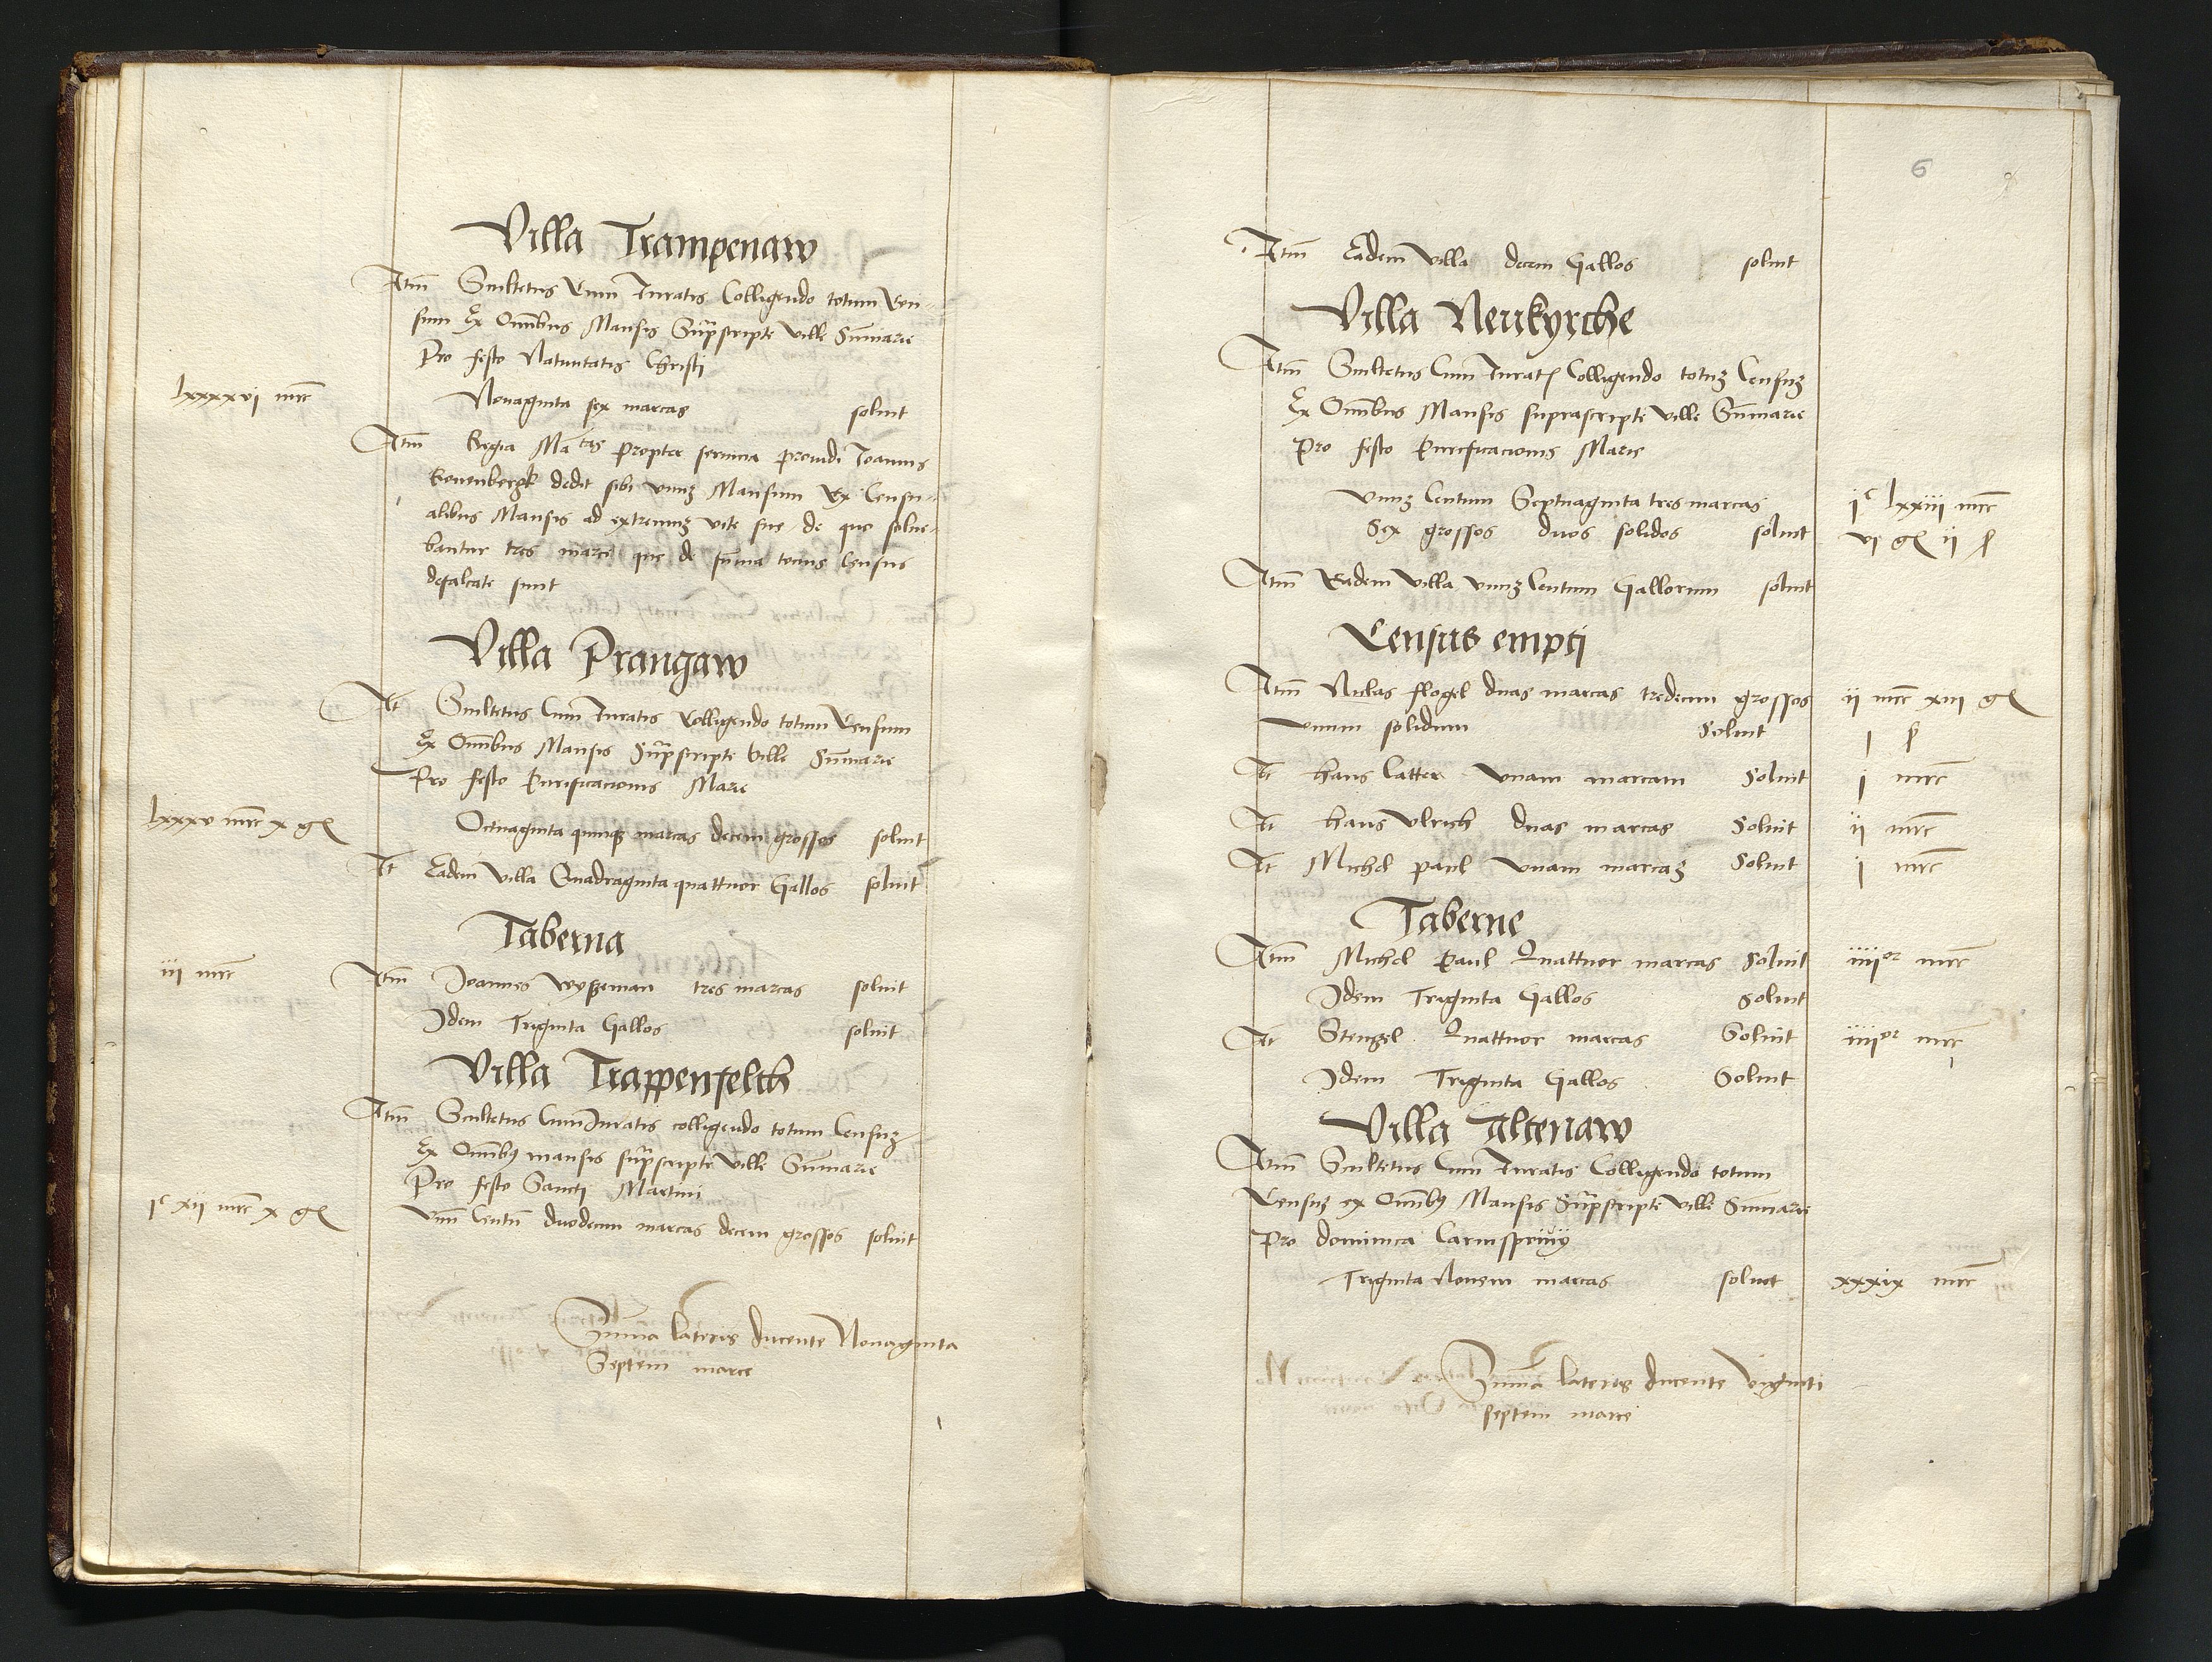 Villa Trampenaw
Itm̄ Scultetus Cum Iuratis Colligendo totum Cen-
sum Ex Omībus Mansis Suprascripte ville Sūmarie
Pro festo Natiuitatis Christi
lxxxxvi mrc Nonaginta sex marcas soluit
Itm̄ Regia Matas propter seruicia prouidi Ioannis
Bonenbergk dedit sibi vnuʒ Mansum Ex Censu-
alibus Mansis ad extremuʒ vite sue de quo solue-
bantur tres marce que de sūma totius Census
defalcate sunt
Villa Prangaw
It Scultetus Cum Iuratis Colligendo totum Censum
Ex Omībus Mansis Suprascripte Ville Sūmarie
Pro festo Purificacionis Marie
lxxxv mrc x gr Octuaginta quinqʒ marcas decem grossos soluit
It Eadem villa Quadraginta quattuor Gallos soluit
Taberna
iii mrc Itm̄ Joannes wysseman tres marcas soluit
Idem Triginta Gallos soluit
Villa Trappenfelth
Itm̄ Scultetus Cum Iuratis colligendo totum Censuʒ
Ex Omībꝰ mansis suprascripte Ville Sūmarie
Pro festo Sancti Martini
jc xii mrc x gr Vnū Centū duodecim marcas decem grossos soluit
Sūma lateris ducente Nonaginta
Septem marce
6
Itm̄ Eadem villa decem Gallos soluit
Villa Neukyrche
Itm̄ Scultetus Cum Iuratis Colligendo totuʒ Censuʒ
Ex Omībus Mansis suprascripte ville Sūmarie
Pro festo Purificacionis Marie
Vnuʒ Centum Septuaginta tres marcas jc lxxiii mrc
Sex grossos duos solidos soluit vi gr ii ſ
Itm̄ Eadem villa vnuʒ Centum Gallorum soluit
Census empti
Itm̄ Niclas flogel duas marcas tredecim grossos ii mrc xiii gr
vnum solidum Soluit j ſ
It hans latter vnam marcam Soluit j mrc
It hans Vlrich duas marcas Soluit ii mrc
It Michel paul vnam marcaʒ Soluit j mrc
Taberne
Itm̄ Michel Paul Quattuor marcas Soluit iiiior mrc
Idem Triginta Gallos Soluit
It Stengel Quattuor marcas Soluit iiiior mrc
Idem Triginta Gallos Soluit
Villa Altenaw
Itm̄ Scultetus Cum Iuratis Colligendo totum
Censuʒ ex Omībꝰ Mansis Suprascripte ville Sūmarie
Pro dominica Carnisprivij
Triginta Nouem marcas soluit xxxix mrc
Sūma lateris ducente viginti
septem marce